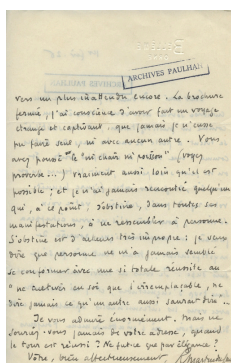 ARCHIVES PAULHAN
vers un plus inattendu encore. La brochure
fermée, j'ai conscience d'avoir fait un voyage
étrange et captivant, que jamais je n'eusse
pu faire seul, ni avec aucun autre. Vous
avez poussé le "ni chair ni poisson" (voyez
proverbe...) vraiment aussi loin qu'il est
possible; et je n'ai jamais rencontré quelqu'un
qui, à ce point, s'obstine, dans toutes ses
manifestations, à ne ressembler à personne.
S'obstine est d'ailleurs très impropre: je veux
dire que personne ne m'a jamais semblé
se conformer avec une si totale réussite au
"ne cultiver en soi que l'irremplaçable, ne
dire jamais ce qu'un autre aussi saurait dire"..
Je vous admire énormément. Mais ne
souriez-vous jamais de votre adresse, quand
le tour est réussi? Ne fut-ce que par élégance?
Vôtre, bien affectueusement